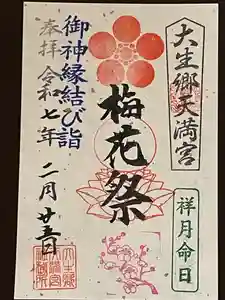 大生郷天満宮
祥月命日
梅花祭
御神縁結び詣
奉拝 令和七年 二月廿五日